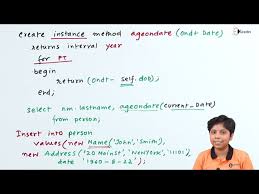 create instance method ageondate (ondt Date)
returns interval year
for PT
begin
return (ondt - self.dob);
end;
select nm.lastname, ageondate (current_Date)
from person;
Insert into person
values (new Name ('John', 'Smith'),
new Address ('20 Mainst', 'NewYork', '11101'),
date '1960-8-22');